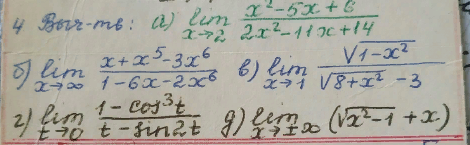 4 Выч-ть: а) lim x→2 (x²-5x+6)/(2x²-11x+14)
б) lim x→∞ (x+x⁵-3x⁶)/(1-6x-2x⁶) в) lim x→1 √(1-x²)/(√(8+x²)-3)
г) lim t→0 (1-cos³t)/(t-sin2t) д) lim x→±∞ (√(x²-1)+x)